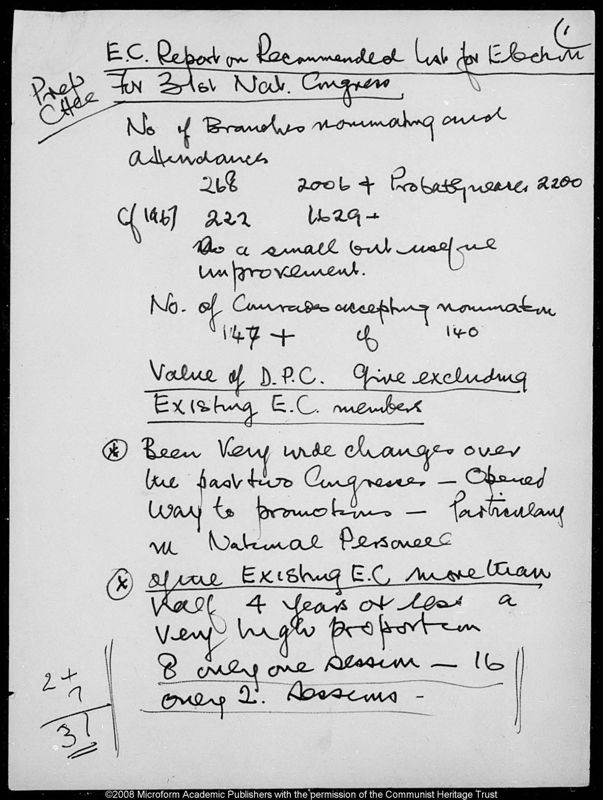 1
E.C. Report on Recommended List for Election
for 31st Nat. Congress
Prep
Cttee
No of Branches nominating and
attendances
268 2006 + Probably nearer 2200
cf 1967 222 1629+
So a small but useful
improvement.
No. of Comrades accepting nomination
147 + cf 140
Value of D.P.C. Give excluding
Existing E.C. members
* Been very wide changes over
the past two Congresses — Opened
way to promotions — Particularly
in National Personnel
* of the Existing E.C more than
half 4 years or less a
very high proportion
8 only one session — 16
only 2. sessions -
2+
7
37
©2008 Microform Academic Publishers with the permission of the Communist Heritage Trust